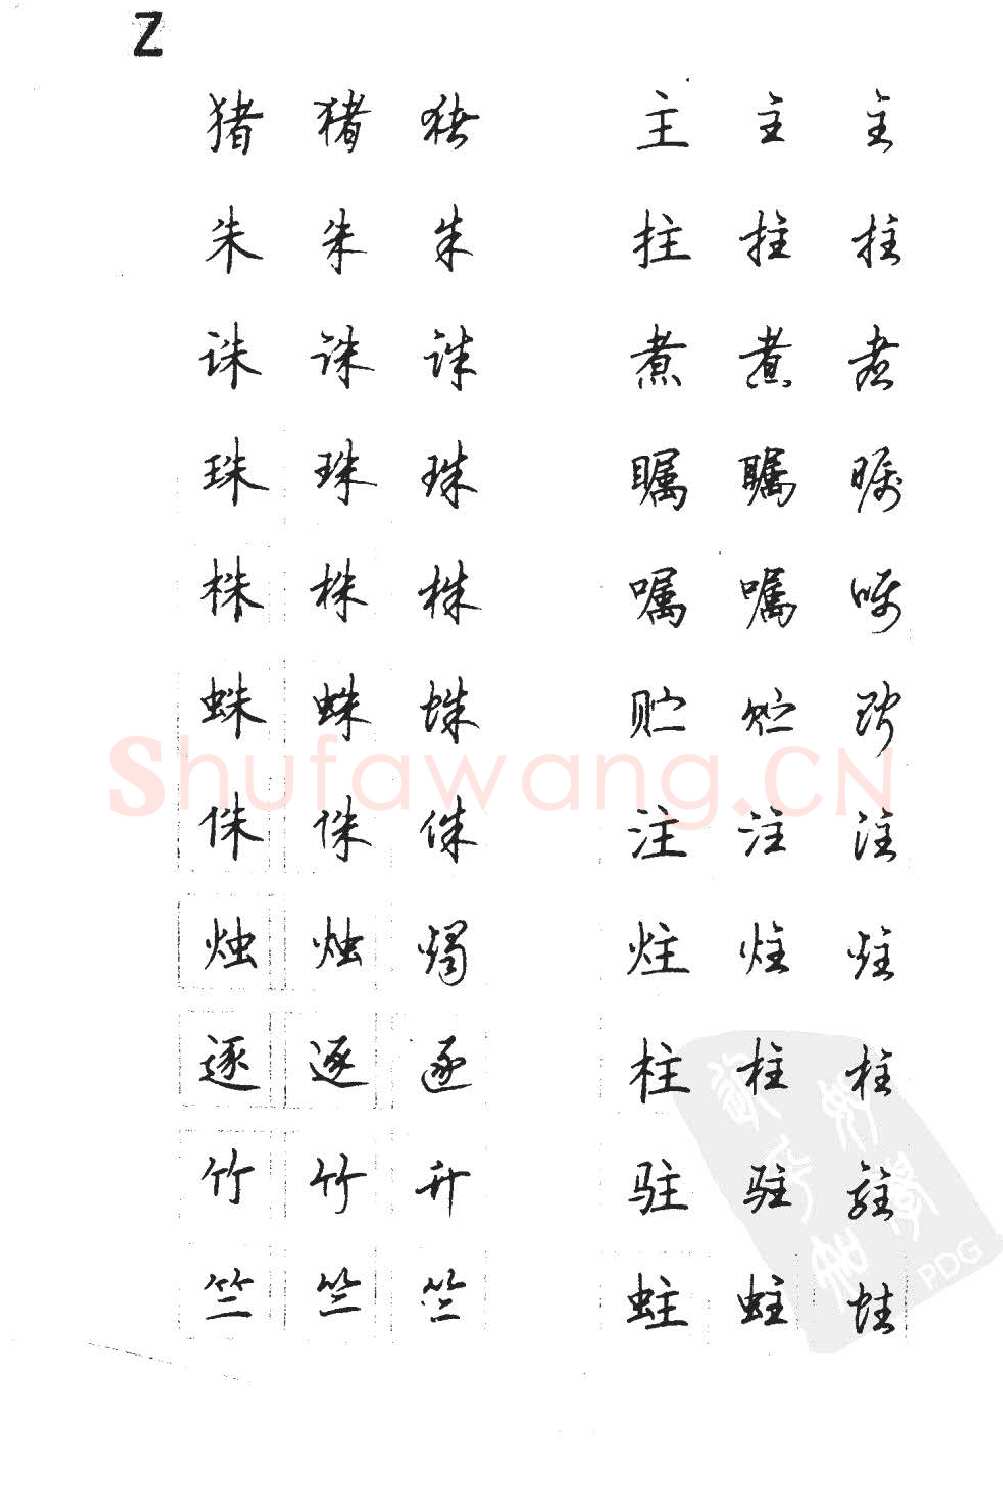 Z
猪 猪 猪 主 主 主
朱 朱 朱 拄 拄 拄
诛 诛 诛 煮 煮 煮
珠 珠 珠 瞩 瞩 瞩
株 株 株 嘱 嘱 嘱
蛛 蛛 蛛 贮 贮 贮
Shufawang.CN
侏 侏 侏 注 注 注
烛 烛 燭 炷 炷 炷
逐 逐 逐 柱 柱 柱
竹 竹 竹 驻 驻 驻
竺 竺 竺 蛀 蛀 蛀
PDG